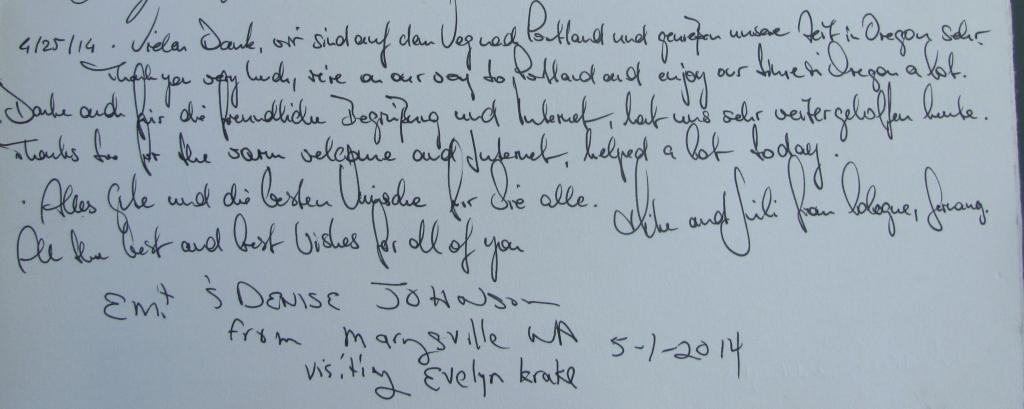 4/25/14. Vielen Dank, wir sind auf dem Weg nach Portland und genießen unsere Zeit in Oregon sehr.
Thank you very much, we're on our way to Portland and enjoy our time in Oregon a lot.
Danke auch für die freundliche Begrüßung und Internet, hat uns sehr weitergeholfen heute.
Thanks too for the warm welcome and Internet, helped a lot today.
Alles Gute und die besten Wünsche für Sie alle.
All the best and best wishes for all of you
and from Cologne, Germany.
's DENISE JOHNSON
from Marysville WA
5-1-2014
visiting Evelyn Krake